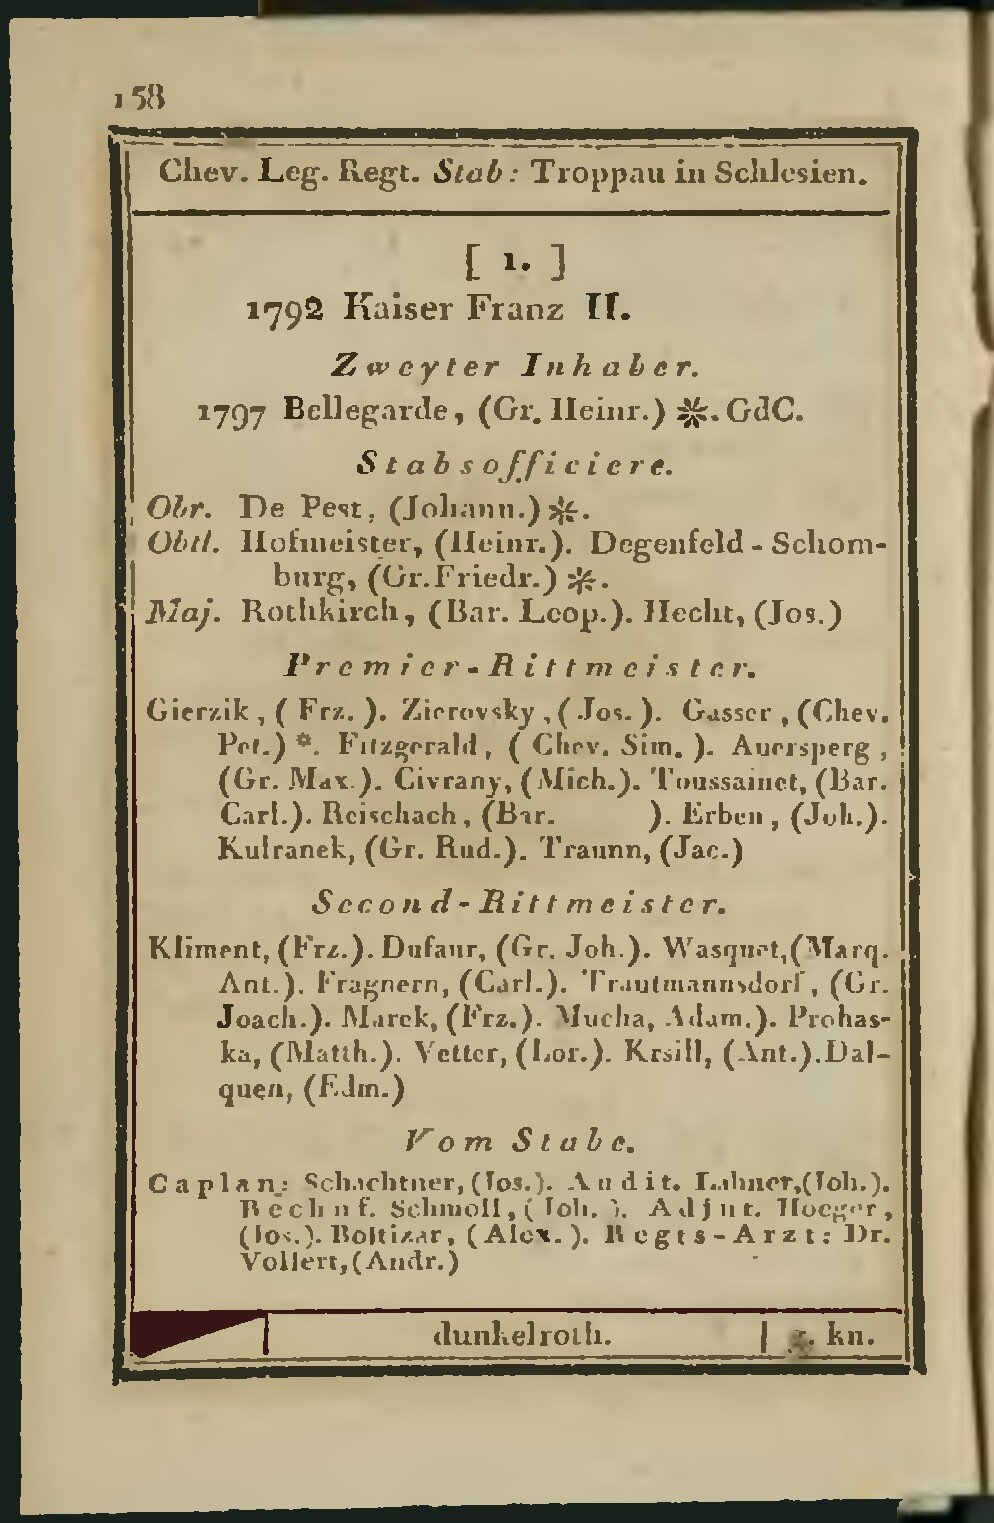 158
Chev. Leg. Regt. Stab: Troppau in Schlesien.
[ 1. ]
1792 Kaiser Franz II.
Zweyter Inhaber.
1797 Bellegarde, (Gr. Heinr.) ✻. GdC.
Stabsofficiere.
Obr. De Pest, (Johann.) ✻.
Obtl. Hofmeister, (Heinr.). Degenfeld-Schom-
burg, (Gr. Friedr.) ✻.
Maj. Rothkirch, (Bar. Leop.). Hecht, (Jos.)
Premier-Rittmeister.
Gierzik, (Frz.). Zierovsky, (Jos.). Gasser, (Chev.
Pet.) *. Fitzgerald, (Chev. Sim.). Auersperg,
(Gr. Max.). Civrany, (Mich.). Toussainct, (Bar.
Carl.). Reischach, (Bar. ). Erben, (Joh.).
Kulranek, (Gr. Rud.). Traunn, (Jac.)
Second-Rittmeister.
Kliment, (Frz.). Dufaur, (Gr. Joh.). Wasquet, (Marq.
Ant.). Fragnern, (Carl.). Trautmannsdorf, (Gr.
Joach.). Marek, (Frz.). Mucha, Adam.). Prohas-
ka, (Matth.). Vetter, (Lor.). Krsill, (Ant.). Dal-
quen, (Edm.)
Vom Stabe.
Caplan: Schachtner, (Jos.). Audit. Lahner, (Joh.).
Rechnf. Schmoll, (Joh.). Adjut. Hoeger,
(Jos.). Boltizar, (Alex.). Regts-Arzt: Dr.
Vollert, (Andr.)
dunkelroth. | kn.